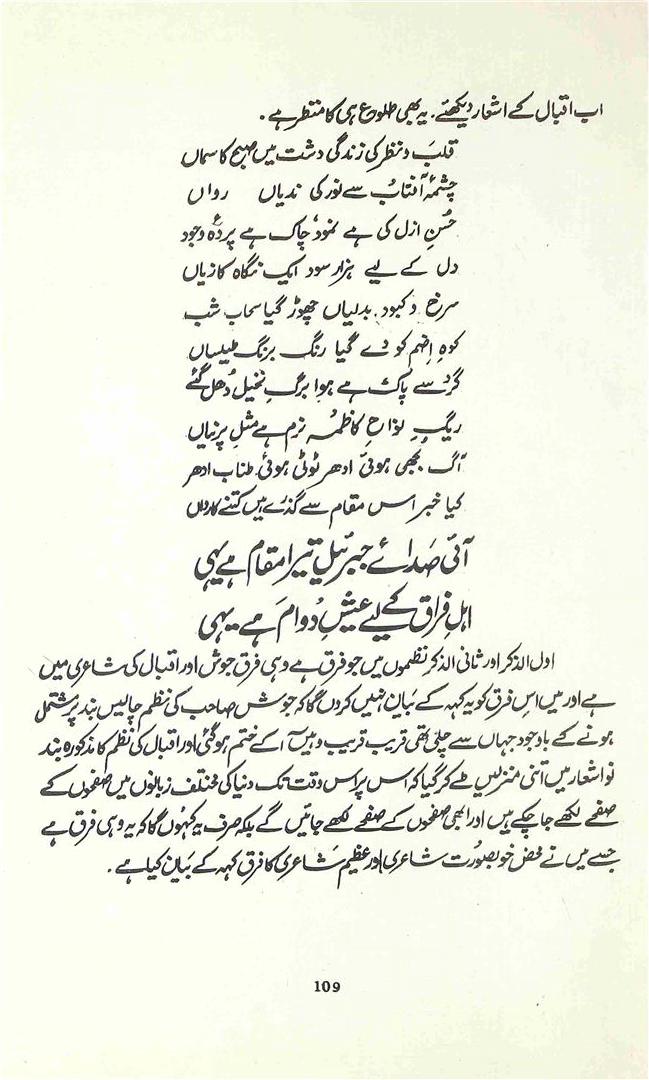 اب اقبال کے اشعار دیکھئے۔ یہ بھی طلوع ہی کا منتظر ہے۔
قلب و نظر کی زندگی دشت میں صبح کا سماں
چشمۂ آفتاب سے نور کی ندیاں رواں
حُسنِ ازل کی ہے نمود چاک ہے پردۂ وجود
دل کے لیے ہزار سود ایک نگاہ کا زیاں
سرخ و کبود بدلیاں چھوڑ گیا سحاب شب
کوہِ اِضم کو دے گیا رنگ برنگ طیلساں
گرد سے پاک ہے ہوا برگِ نخیل دُھل گئے
ریگِ نواحِ کاظمہ نرم ہے مثلِ پرنیاں
آگ بجھی ہوئی ادھر ٹوٹی ہوئی طناب ادھر
کیا خبر اس مقام سے گذرے ہیں کتنے کارواں
آئی صدائے جبرئیل تیرا مقام ہے یہی
اہلِ فراق کے لیے عیشِ دُوام ہے یہی
اول الذکر اور ثانی الذکر نظموں میں جو فرق ہے وہی فرق جوش اور اقبال کی شاعری میں
ہے اور میں اس فرق کو یہ کہہ کے بَیان نہیں کروں گا کہ جوش صاحب کی نظم چالیس بند پر مشتمل
ہونے کے باوجود جہاں سے چلی تھی قریب قریب وہیں آ کے ختم ہو گئی اور اقبال کی نظم کا مذکورہ بند
نو اشعار میں اتنی منزلیں طے کر گیا کہ اس پر اس وقت تک دنیا کی مختلف زبانوں میں صفحوں کے
صفحے لکھے جا چکے ہیں اور ابھی صفحوں کے صفحے لکھے جائیں گے بلکہ صرف یہ کہوں گا کہ یہ وہی فرق ہے
جسے میں نے محض خوبصورت شاعری اور عظیم شاعری کا فرق کہہ کے بَیان کیا ہے۔
109